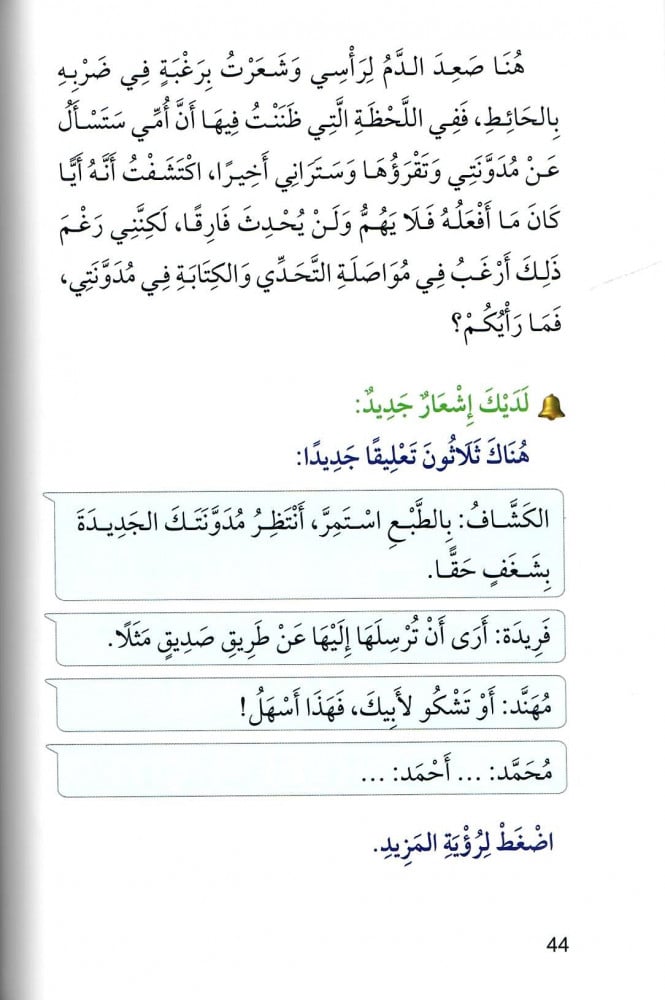 هُنَا صَعِدَ الدَّمُ لِرَأْسِي وَشَعَرْتُ بِرَغْبَةٍ فِي ضَرْبِهِ
بِالحَائِطِ، فَفِي اللَّحْظَةِ الَّتِي ظَنَنْتُ فِيهَا أَنَّ أُمِّي سَتَسْأَلُ
عَنْ مُدَوَّنَتِي وَتَقْرَؤُهَا وَسَتَرَانِي أَخِيرًا، اكْتَشَفْتُ أَنَّهُ أَيًّا
كَانَ مَا أَفْعَلُهُ فَلَا يَهُمُّ وَلَنْ يُحْدِثَ فَارِقًا، لَكِنَّنِي رَغْمَ
ذَلِكَ أَرْغَبُ فِي مُوَاصَلَةِ التَّحَدِّي وَالكِتَابَةِ فِي مُدَوَّنَتِي،
فَمَا رَأْيُكُمْ؟
لَدَيْكَ إِشْعَارٌ جَدِيدٌ:
هُنَاكَ ثَلَاثُونَ تَعْلِيقًا جَدِيدًا:
الكَشَّافُ: بِالطَّبْعِ اسْتَمِرَّ، أَنْتَظِرُ مُدَوَّنَتَكَ الجَدِيدَةَ
بِشَغَفٍ حَقًّا.
فَرِيدَة: أَرَى أَنْ تُرْسِلَهَا إِلَيْهَا عَنْ طَرِيقِ صَدِيقٍ مَثَلًا.
مُهَنَّد: أَوْ تَشْكُو لأَبِيكَ، فَهَذَا أَسْهَلُ!
مُحَمَّد: ... أَحْمَد: ...
اضْغَطْ لِرُؤْيَةِ المَزِيدِ.
44